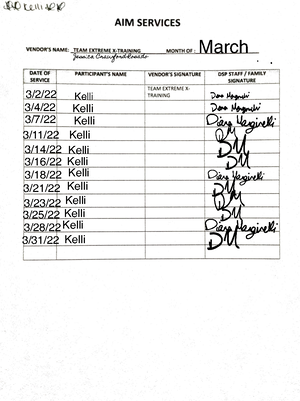 AIM SERVICES
VENDOR'S NAME: TEAM EXTREME X-TRAINING MONTH OF: March
DATE OF SERVICE PARTICIPANT'S NAME VENDOR'S SIGNATURE DSP STAFF / FAMILY SIGNATURE
3/2/22 Kelli TEAM EXTREME X-TRAINING
3/4/22 Kelli
3/7/22 Kelli
3/11/22 Kelli DM
3/14/22 Kelli DM
3/16/22 Kelli DM
3/18/22 Kelli
3/21/22 Kelli DM
3/23/22 Kelli DM
3/25/22 Kelli DM
3/28/22 Kelli
3/31/22 Kelli DM